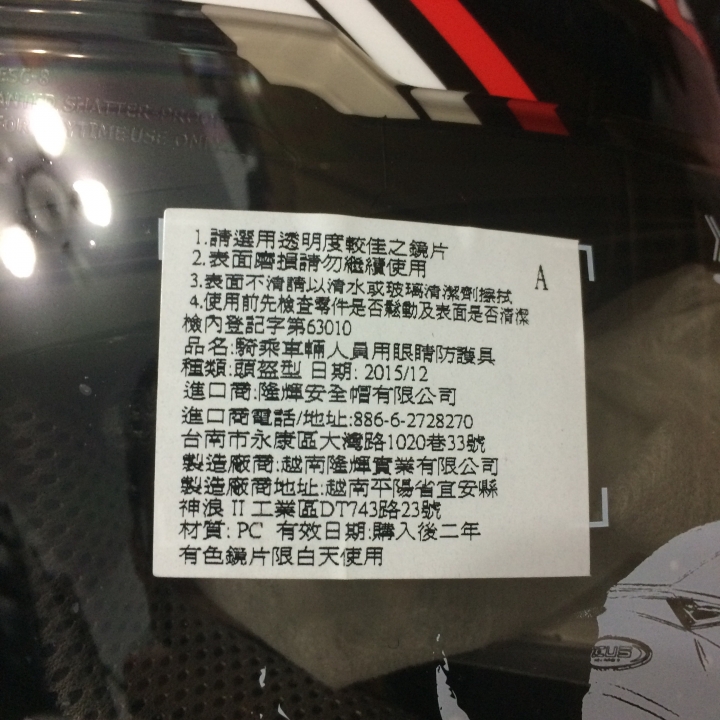 SHATTER-PROOF
DAYTIME USE ONLY
1.請選用透明度較佳之鏡片
2.表面磨損請勿繼續使用
3.表面不清請以清水或玻璃清潔劑擦拭
4.使用前先檢查零件是否鬆動及表面是否清潔
A
檢內登記字第63010
品名:騎乘車輛人員用眼睛防護具
種類:頭盔型 日期: 2015/12
進口商:隆輝安全帽有限公司
進口商電話/地址:886-6-2728270
台南市永康區大灣路1020巷33號
製造廠商:越南隆輝實業有限公司
製造廠商地址:越南平陽省宜安縣
神浪 II 工業區DT743路23號
材質: PC 有效日期:購入後二年
有色鏡片限白天使用